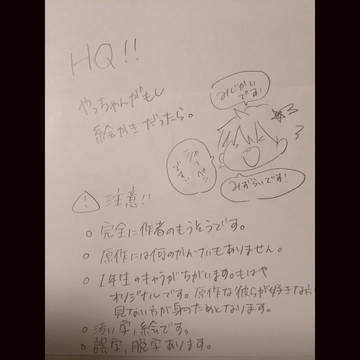 HQ!!
やっちゃんがもし
絵かきだったら。
みじかい
です!
シャーペン
です。
みづらいです!
注意!!
完全に作者のもうそうです。
原作には何のかんけいもありません。
1年生のキャラがちがいます。もはや
オリジナルです。原作な彼らが好きなら
見ない方が身のためとなります。
汚い字、絵です。
誤字、脱字あります。